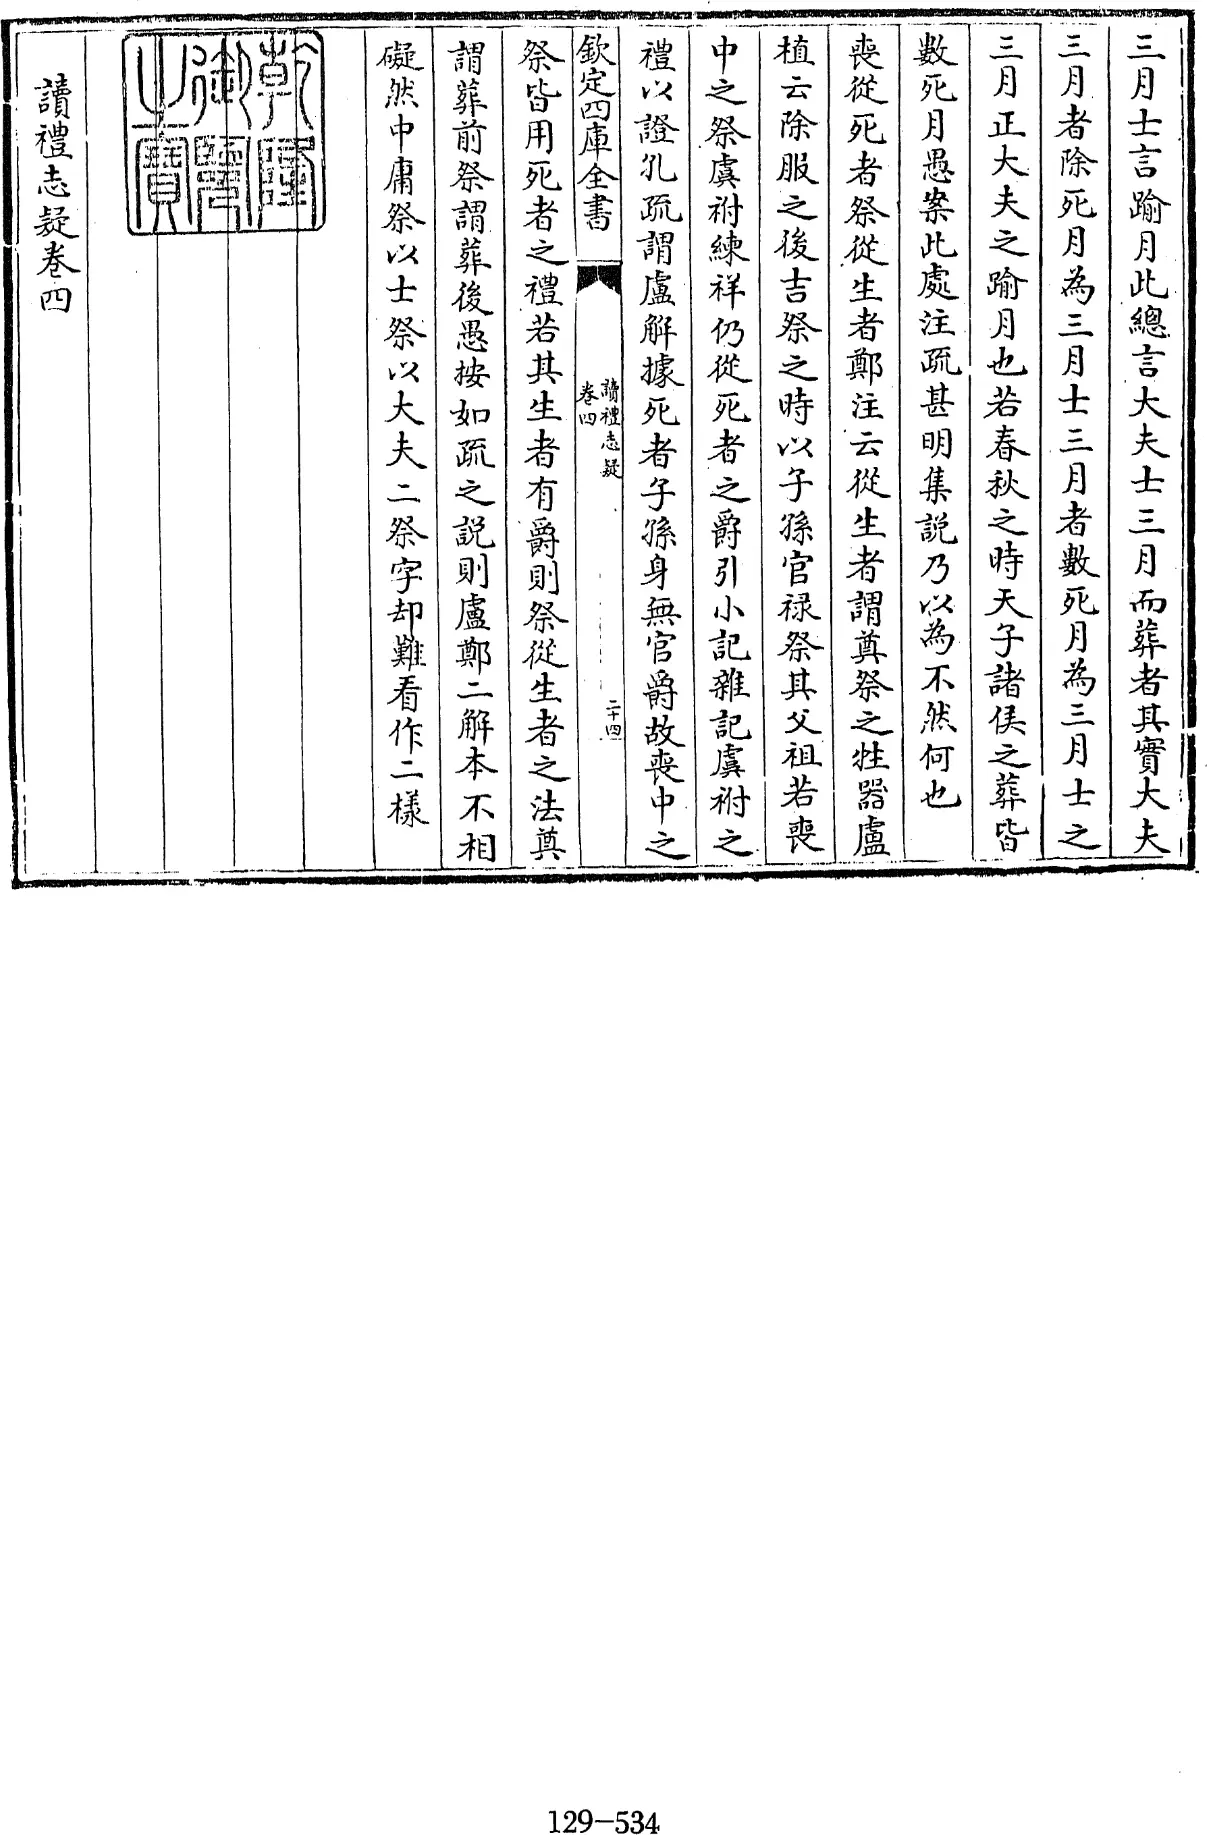 三月士言踰月此總言大夫士三月而葬者其實大夫
三月者除死月為三月士三月者數死月為三月士之
三月正大夫之踰月也若春秋之時天子諸侯之葬皆
數死月愚案此處注疏甚明集説乃以為不然何也
喪從死者祭從生者鄭注云從生者謂奠祭之牲器盧
植云除服之後吉祭之時以子孫官祿祭其父祖若喪
中之祭虞祔練祥仍從死者之爵引小記雜記虞祔之
禮以證孔疏謂盧解據死者子孫身無官爵故喪中之
欽定四庫全書
讀禮志疑
卷四
二十四
祭皆用死者之禮若其生者有爵則祭從生者之法奠
謂葬前祭謂葬後愚按如疏之説則盧鄭二解本不相
礙然中庸祭以士祭以大夫二祭字却難看作二樣
乾隆
御覽
之寶
讀禮志疑卷四
129-534